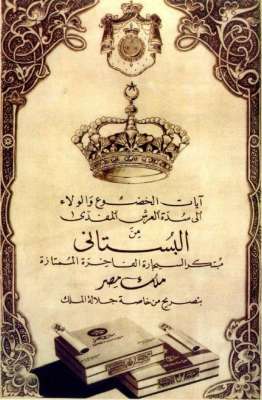 آيات الخضوع والولاء
الى سُدّة العرش المفدّى
مِن
البُستاني
مُبتكر السيجارة الفاخرة الممتازة
مَلك مِصر
بتصريح من خاصة جلالة الملك